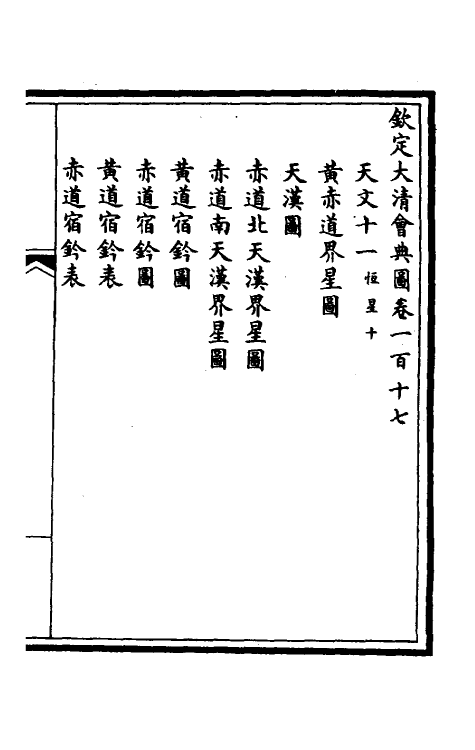 欽定大清會典圖卷一百十七
天文十一恒星十
黃赤道界星圖
天漢圖
赤道北天漢界星圖
赤道南天漢界星圖
黃道宿鈐圖
赤道宿鈐圖
黃道宿鈐表
赤道宿鈐表